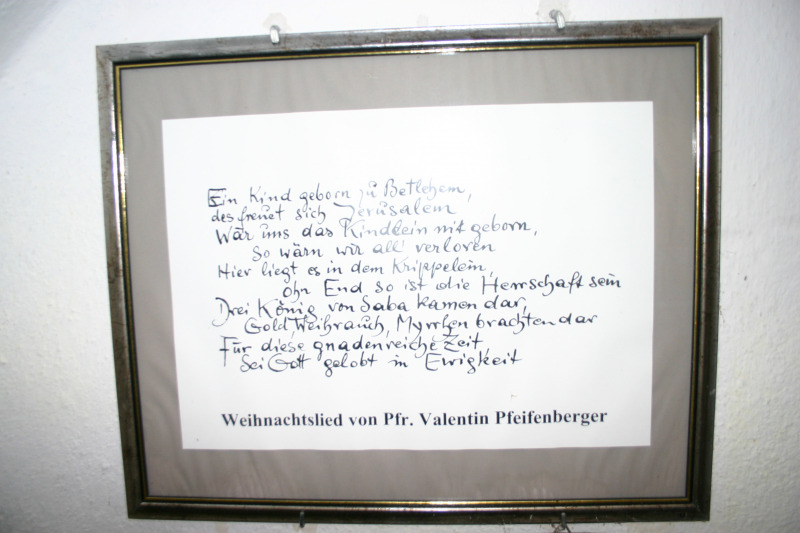 Ein Kind geborn zu Betlehem,
des freuet sich Jerusalem
Wär uns das Kindlein nit geborn,
So wärn wir all' verloren
Hier liegt es in dem Krippelein,
ohn End so ist die Herrschaft sein
Drei König von Saba kamen dar,
Gold, Weihrauch, Myrrhen brachten dar
Für diese gnadenreiche Zeit
Sei Gott gelobt in Ewigkeit
Weihnachtslied von Pfr. Valentin Pfeifenberger